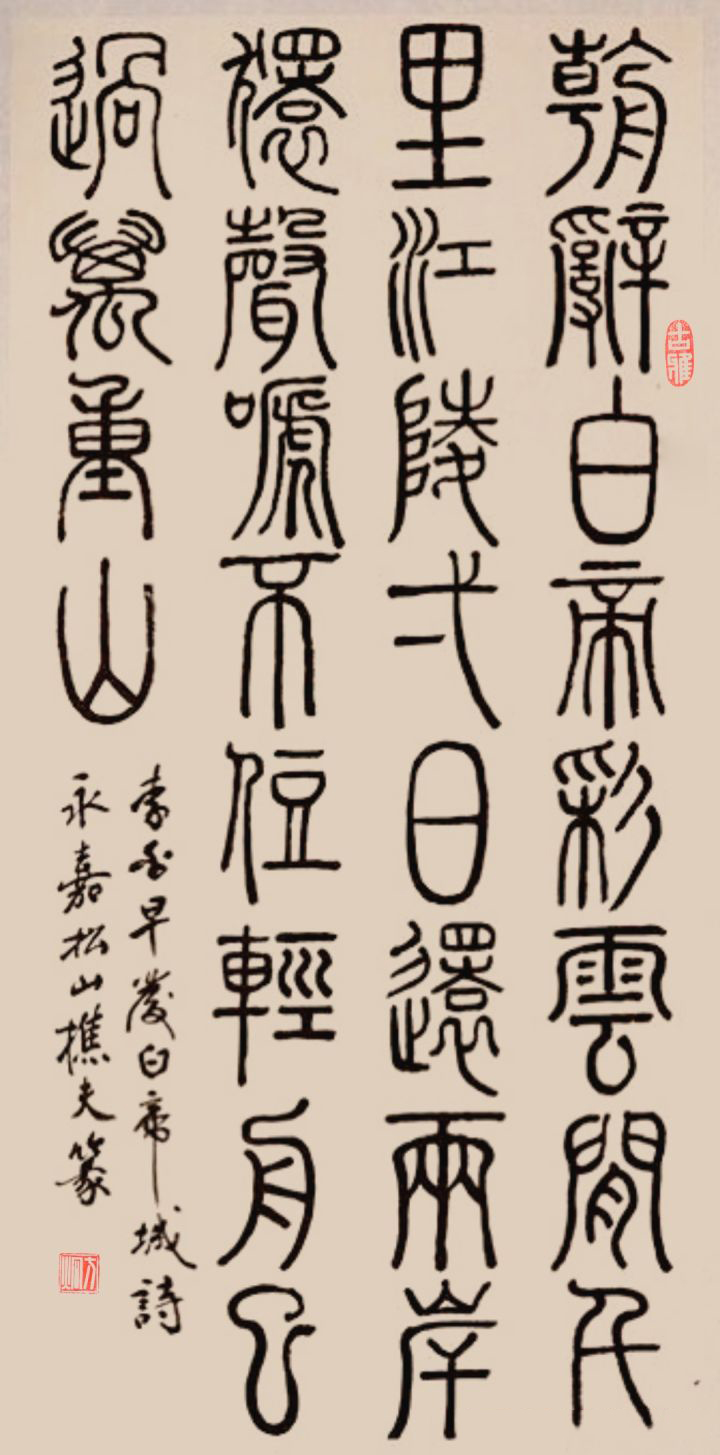 朝辭白帝彩雲間千
里江陵弌日還兩岸
猿聲嗁不住輕舟已
過萬重山
李白早發白帝城詩
永嘉松山樵夫篆